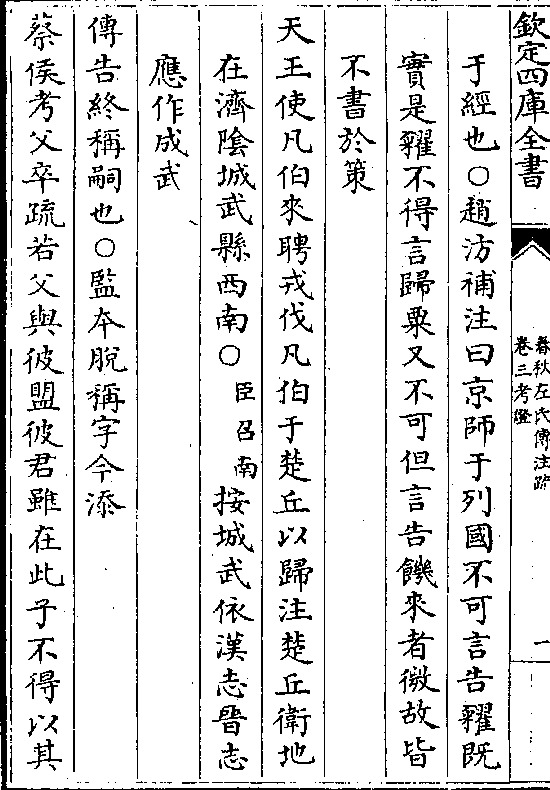 欽定四庫全書
春秋左氏傳注疏
卷三考證
一
于經也○趙汸補注曰京師于列國不可言告糴既
實是糴不得言歸粟又不可但言告饑來者微故皆
不書於策
天王使凡伯來聘戎伐凡伯于楚丘以歸注楚丘衛地
在濟陰城武縣西南○臣召南按城武依漢志晉志
應作成武
傳告終稱嗣也○監本脫稱字今添
蔡侯考父卒疏若父與彼盟彼君雖在此子不得以其